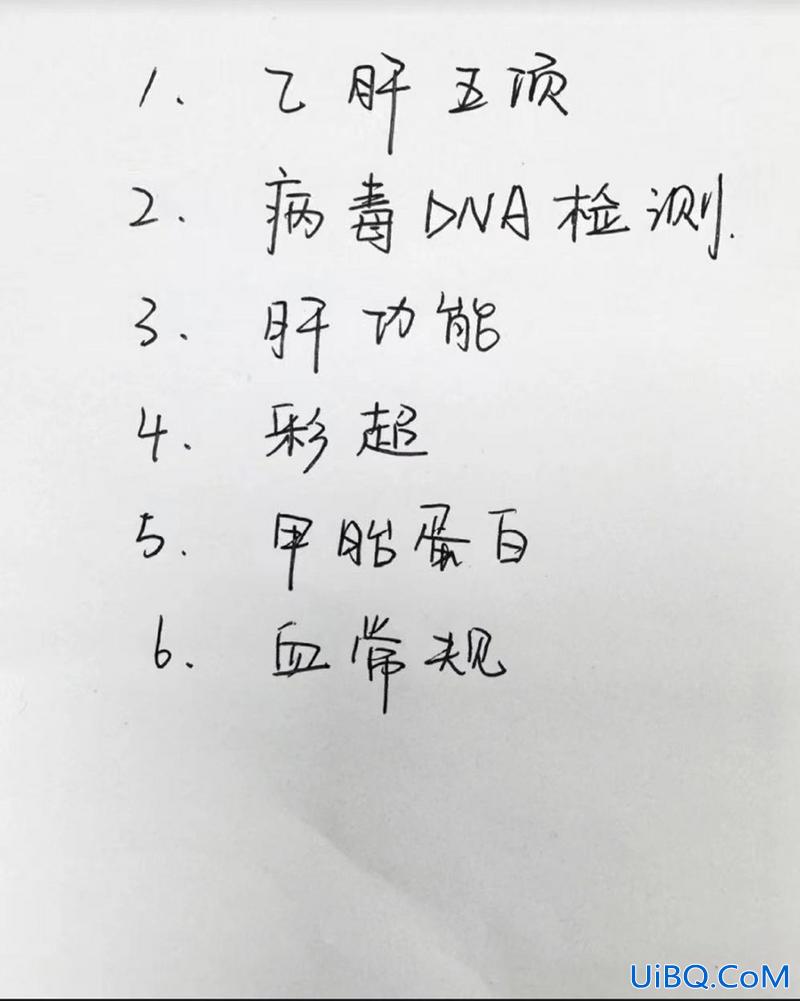 1. 乙肝五项
2. 病毒DNA检测.
3. 肝功能
4. 彩超
5. 甲胎蛋白
6. 血常规
UiBQ.CoM